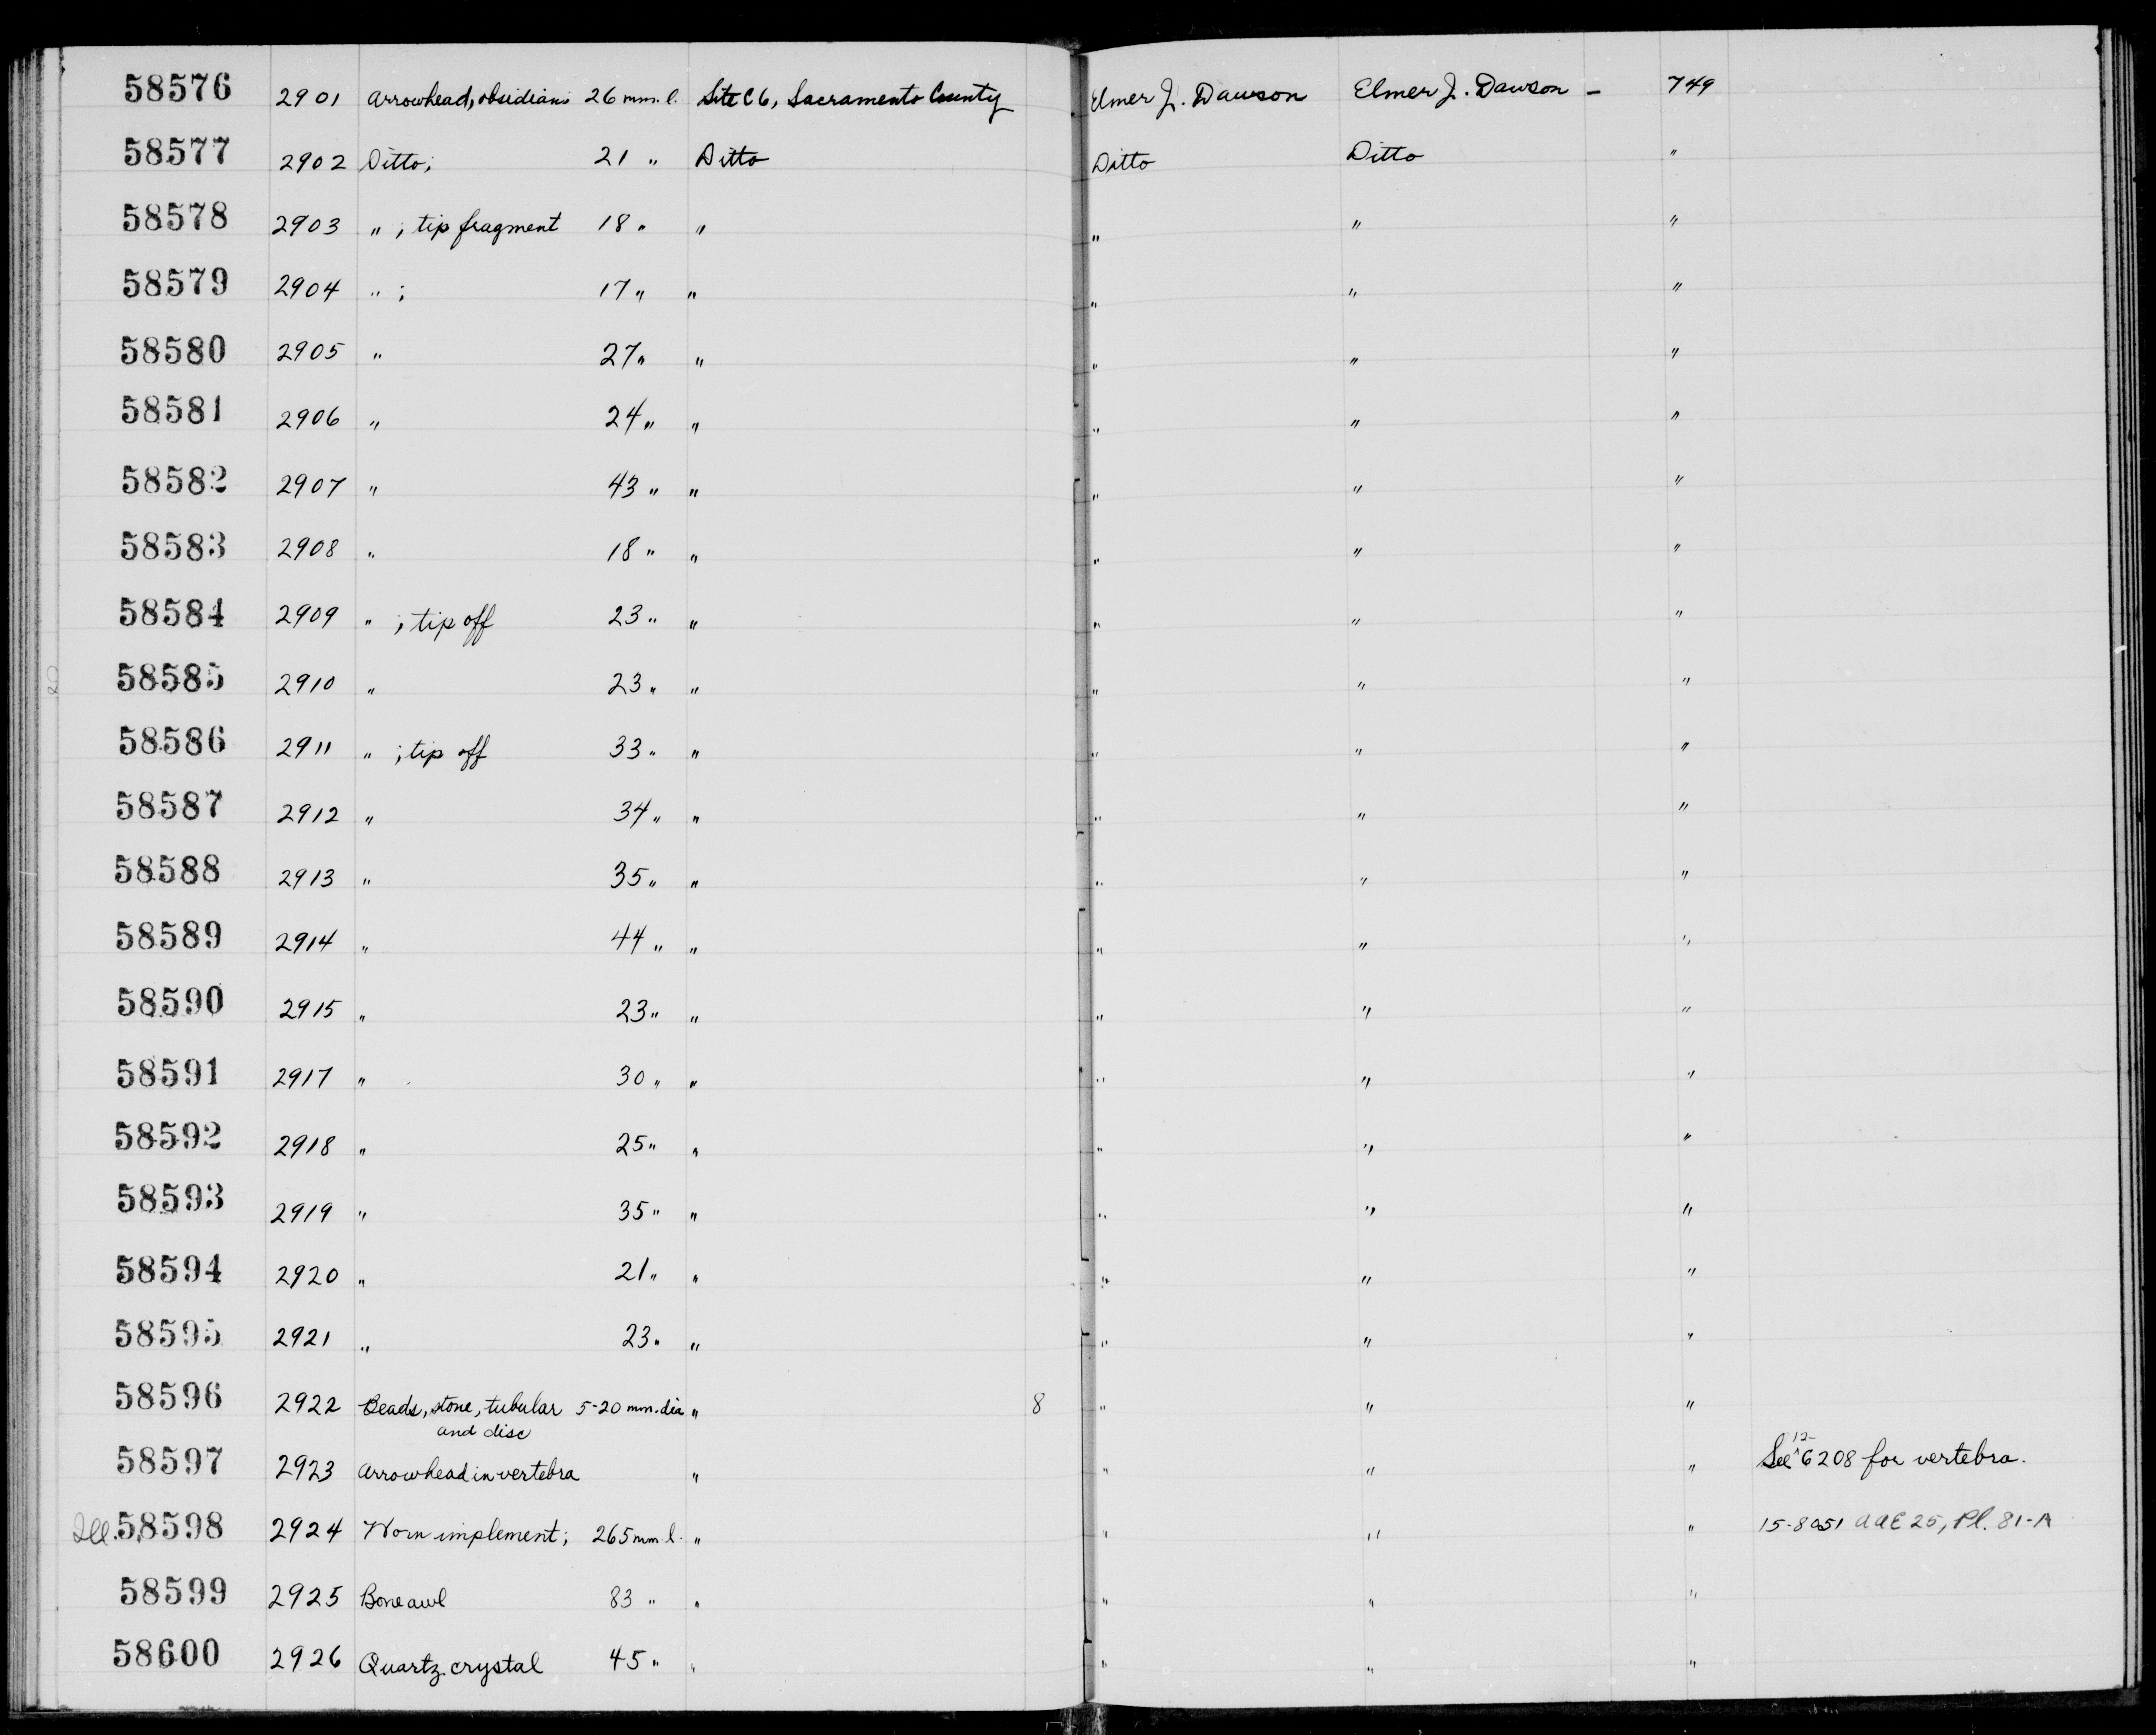 58576 2901 Arrowhead, obsidian; 26 mm. l. Site C6, Sacramento County Elmer J. Dawson Elmer J. Dawson - 749
58577 2902 Ditto; 21 " Ditto Ditto Ditto "
58578 2903 " ; tip fragment 18 " " " " "
58579 2904 " ; 17 " " " " "
58580 2905 " 27 " " " " "
58581 2906 " 24 " " " " "
58582 2907 " 43 " " " " "
58583 2908 " 18 " " " " "
58584 2909 " ; tip off 23 " " " " "
58585 2910 " 23 " " " " "
58586 2911 " ; tip off 33 " " " " "
58587 2912 " 34 " " " " "
58588 2913 " 35 " " " " "
58589 2914 " 44 " " " " "
58590 2915 " 23 " " " " "
58591 2917 " 30 " " " " "
58592 2918 " 25 " " " " "
58593 2919 " 35 " " " " "
58594 2920 " 21 " " " " "
58595 2921 " 23 " " " " "
58596 2922 Beads, stone, tubular 5-20 mm. dia " 8 " " "
and disc
58597 2923 Arrowhead in vertebra " " " " See 12-6208 for vertebra.
Ill. 58598 2924 Horn implement; 265 mm l. " " " " 15-8051 AAE 25, Pl. 81-A
58599 2925 Bone awl 83 " " " " "
58600 2926 Quartz crystal 45 " " " " "